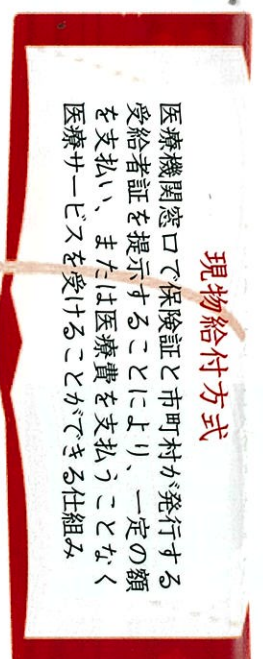 現物給付方式
医療機関窓口で保険証と市町村が発行する
受給者証を提示することにより、一定の額
を支払い、または医療費を支払うことなく
医療サービスを受けることができる仕組み